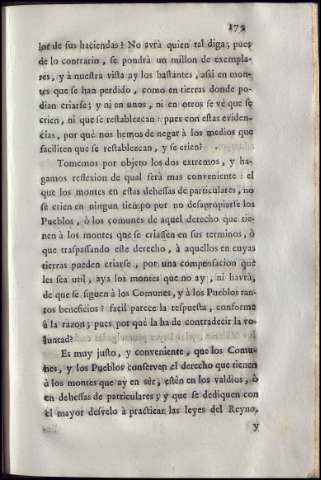 175
los de sus haciendas? No avrà quien tal diga; pues
de lo contrario, se pondrà un millon de exempla-
res, y à nuestra vista ay los bastantes, assi en mon-
tes que se han perdido, como en tierras donde po-
dian criarse; y ni en unos, ni en otros se vè que se
crien, ni que se restablezcan: pues con estas eviden-
cias, por què nos hemos de negar à los medios que
faciliten que se restablezcan, y se crien?
Tomemos por objeto los dos extremos, y ha-
gamos reflexion de qual serà mas conveniente: el
que los montes en estas dehessas de particulares, no
se crien en ningun tiempo por no desapropiarse los
Pueblos, ò los comunes de aquel derecho que tie-
nen à los montes que se criassen en sus terminos, ò
que traspassando este derecho, à aquellos en cuyas
tierras pueden criarse, por una compensacion que
les sea util, aya los montes que no ay, ni havrà,
de que se siguen à los Comunes, y à los Pueblos tan-
tos beneficios? facil parece la respuesta, conforme
à la razon; pues por què la ha de contradecir la vo-
luntad?
Es muy justo, y conveniente, que los Comu-
nes, y los Pueblos conserven el derecho que tienen
à los montes que ay en sèr, estèn en los valdios, ò
en dehessas de particulares; y que se dediquen con
el mayor desvelo à practicar las leyes del Reyno,
y